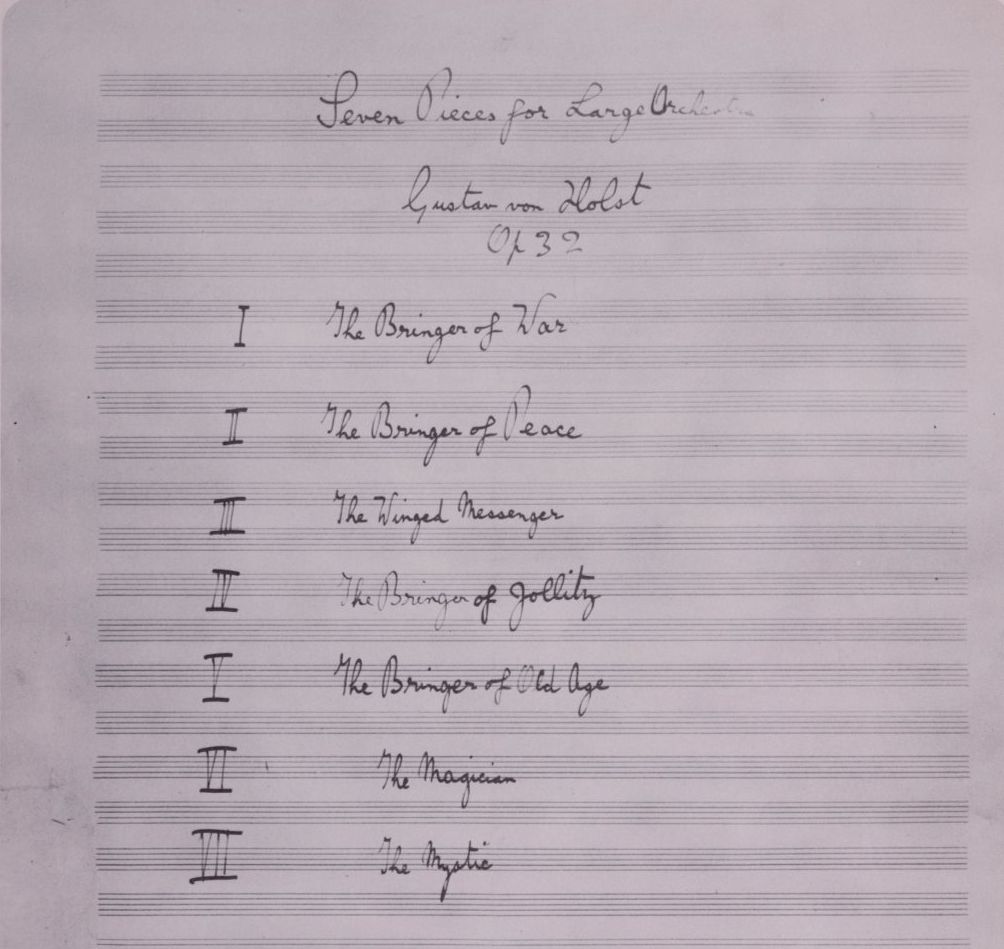 Seven Pieces for Large Orchestra
Gustav von Holst
Op 32
I The Bringer of War
II The Bringer of Peace
III The Winged Messenger
IV The Bringer of Jollity
V The Bringer of Old Age
VI The Magician
VII The Mystic